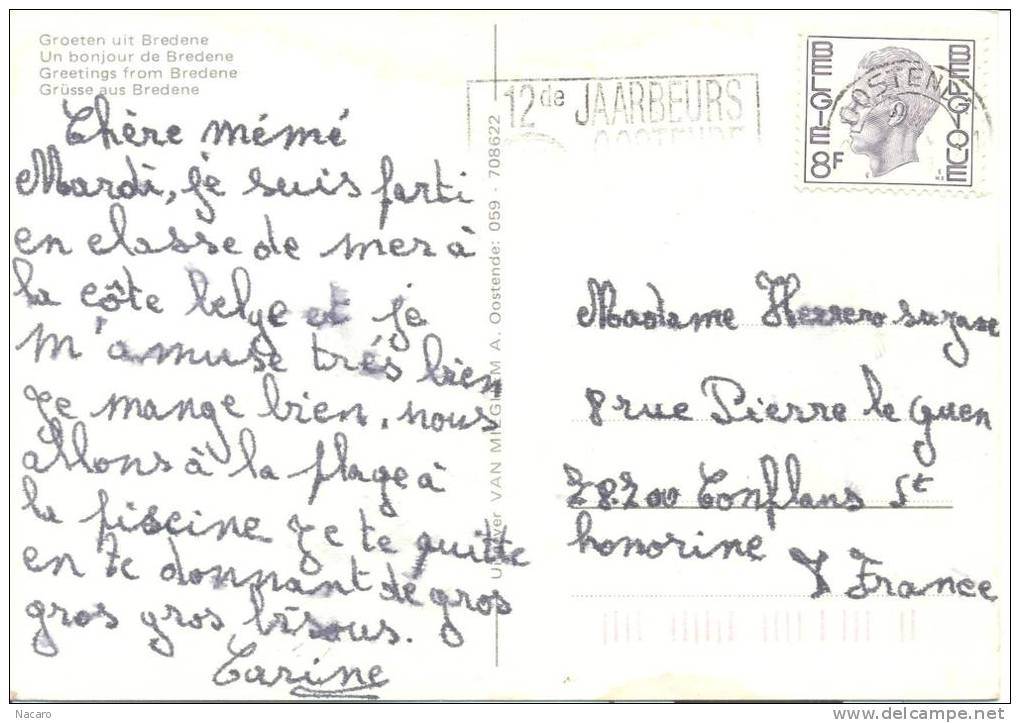 Groeten uit Bredene
Un bonjour de Bredene
Greetings from Bredene
Grüsse aus Bredene
Chère mémé
Mardi, je suis parti
en classe de mer à
la côte belge et je
m'amuse trés bien
Je mange bien, nous
allons à la plage à
la piscine je te quitte
en te donnant de gros
gros gros bisous.
Carine
VAN MIEGHEM A. Oostende: 059 - 708622
12de JAARBEURS
OOSTENDE
BELGIE BELGIQUE
8F
OOSTEN
Madame Herrero suzane
8 rue Pierre le guen
78.200 Conflans St
honorine
France
Nacaro
http://www.delcampe.net